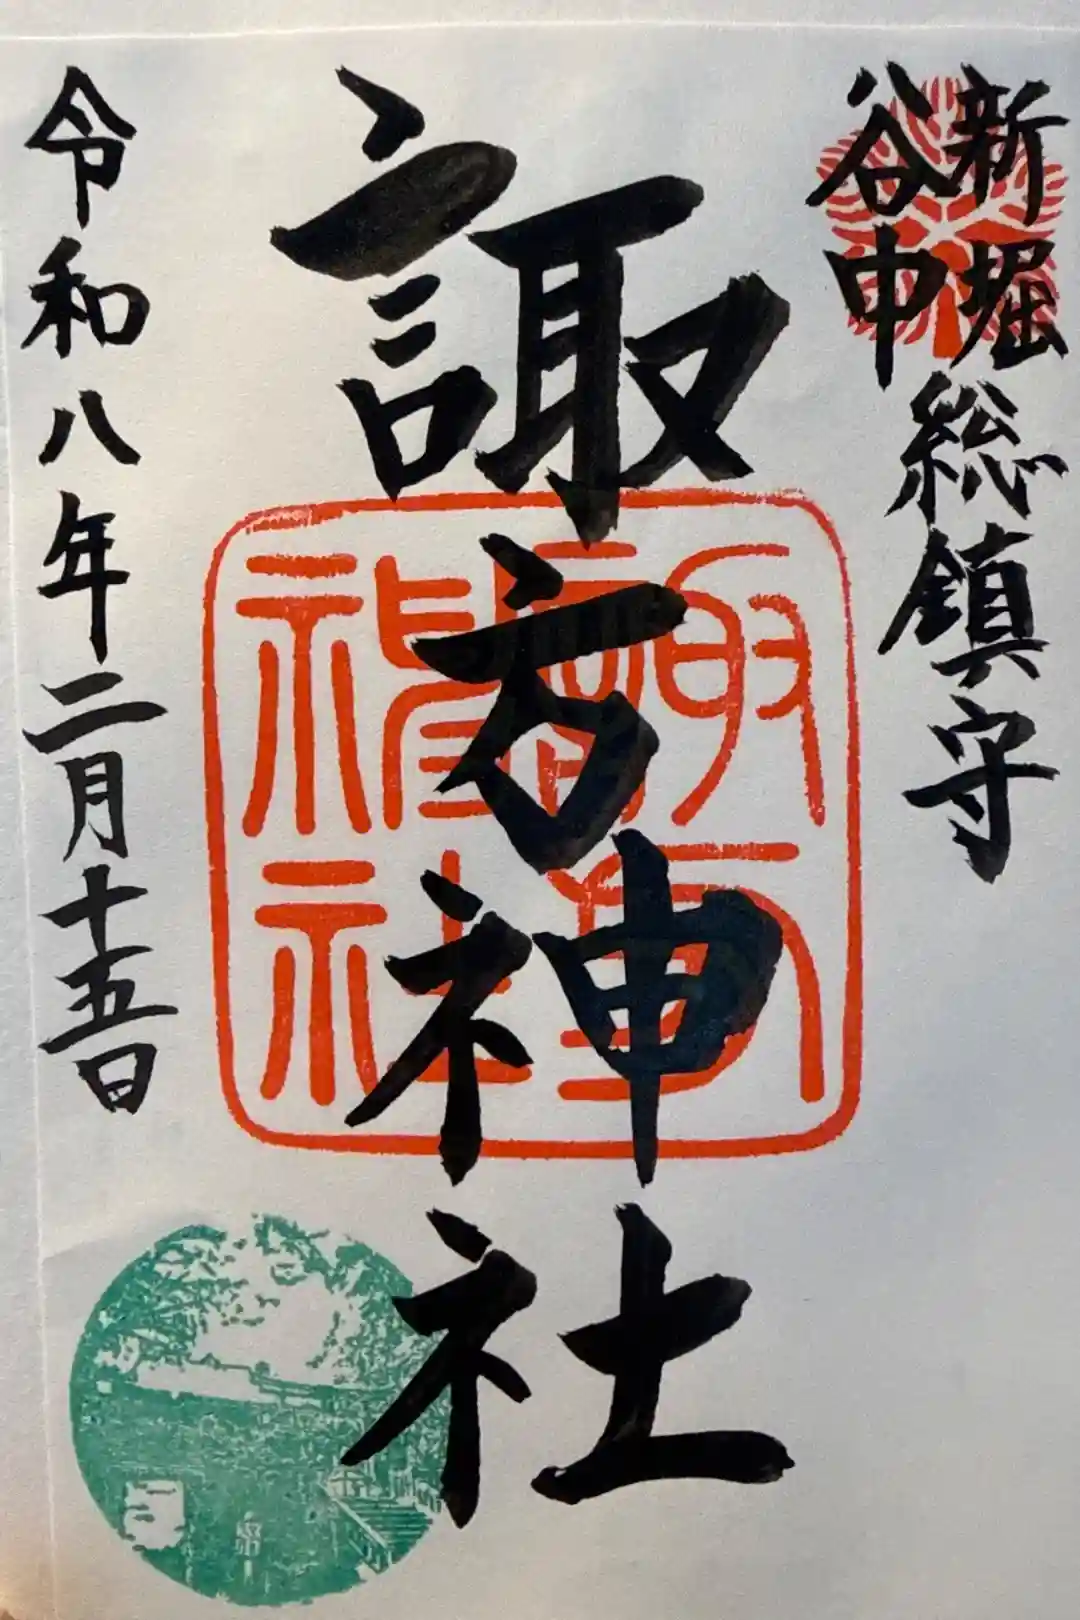 新堀
谷中
総鎮守
諏方神社
諏方神社
令和八年二月十五日